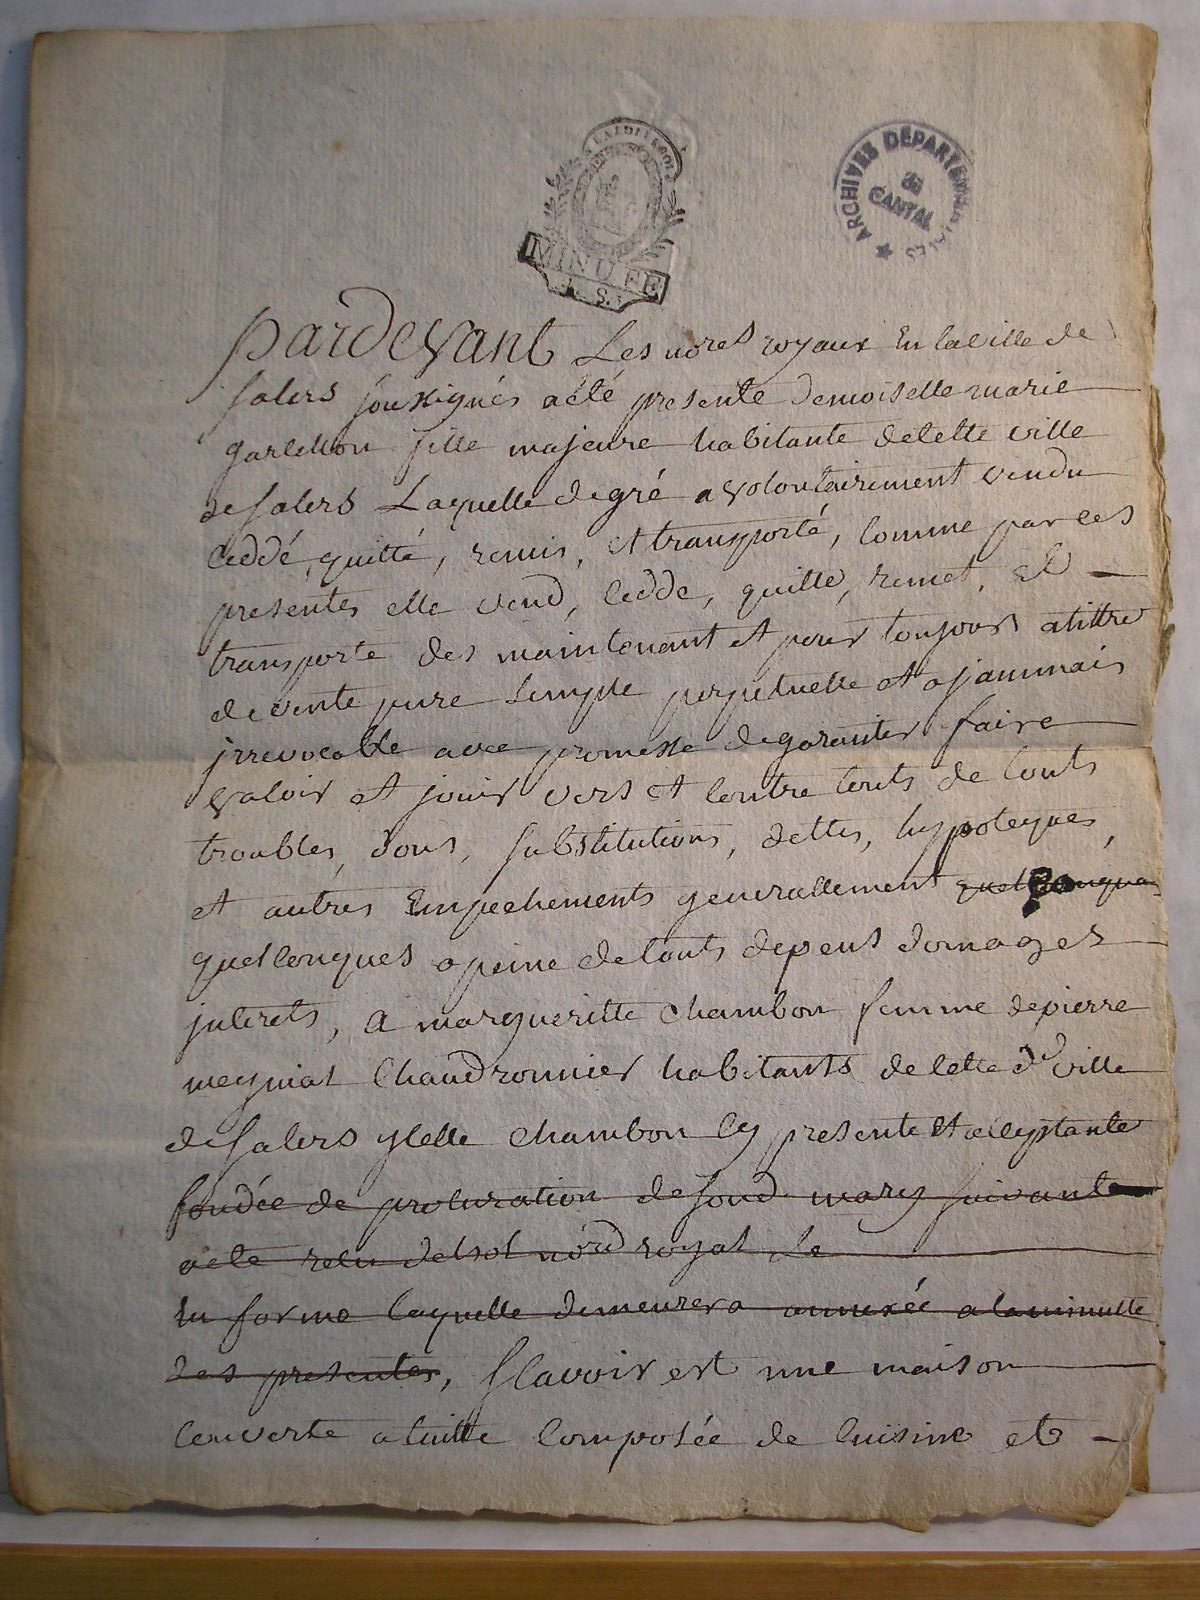 MINUTE
S.
ARCHIVES DEPARTEMENTALES
du
CANTAL
pardevant Les nores royaux En laville de
salers soussignés a été presente demoiselle marie
fille majeure habitante de cette ville
de salers Laquelle de gré a volontairement vendu
ceddé, quitté, remis, et transporté, comme par ces
presentes elle vend, cedde, quitte, remet, et
transporte des maintenant et pour toujours atittre
de vente pure simple perpetuelle et a jammais
jrrevocable avec promesse de garantir faire
valoir et jouir vers et contre touts de touts
troubles, dons, substitutions, dettes, hypoteques,
et autres Empechements generallement quelconques
quelconques a peine de touts depens domages
jnterets, a margueritte chambon femme de pierre
meyniat chaudronnier habitants de cette de ville
de salers ycelle chambon cy presente et acceptante
fondée de procuration de son d. mary suivant
acte relu delsol nore royal le
en forme laquelle demeurera annexée a la minutte
des presentes, scavoir est une maison
couverte a tuille composée de cuisine et